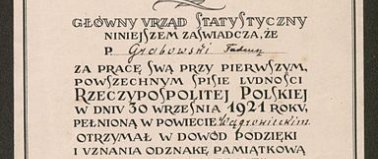 GŁÓWNY URZĄD STATYSTYCZNY
NINIEJSZEM ZAŚWIADCZA, ŻE
P. Grabowski Tadeusz
ZA PRACĘ SWĄ PRZY PIERWSZYM,
POWSZECHNYM SPISIE LVDNOŚCI
RZECZYPOSPOLITEJ POLSKIEJ
W DNIV 30 WRZEŚNIA 1921 ROKV,
PEŁNIONĄ W POWIECIE Wągrowieckim
OTRZYMAŁ W DOWÓD PODZIĘKI
I VZNANIA ODZNAKĘ PAMIĄTKOWĄ